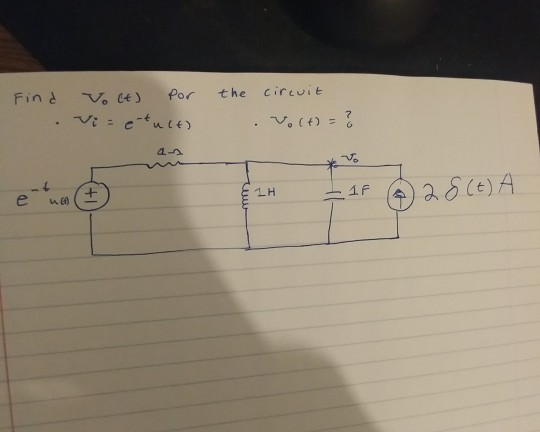 Find Vo(t) for the circuit
. Vi = e^-t u(t) . Vo(t) = ?
Vo
e^-t u(t)
1H
1F
2δ(t) A